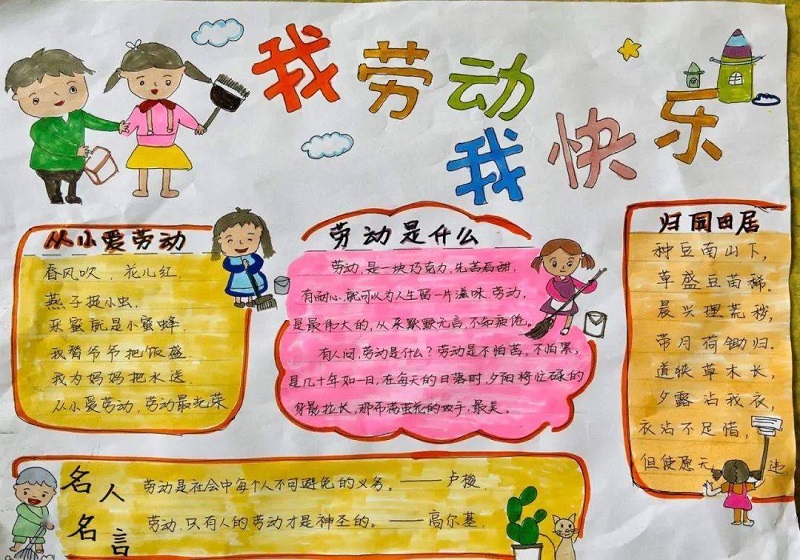 我劳动
我快乐
从小爱劳动
春风吹、花儿红
燕子捉小虫.
采蜜就是小蜜蜂.
我帮爷爷把饭盛
我为妈妈把水送
从小爱劳动,劳动最光荣
劳动是什么
劳动,是一块巧克力,先苦后甜.
有耐心,就可以为人生留一片滋味.劳动,
是最伟大的,从来默默无言,不知疲倦。
有人问,劳动是什么?劳动是不怕苦、不怕累,
是几十年如一日,在每天的日落时,夕阳将忙碌的
身影拉长,那布满茧花的双手,最美。
归园田居
种豆南山下,
草盛豆苗稀.
晨兴理荒秽,
带月荷锄归.
道狭草木长,
夕露沾我衣,
衣沾不足惜,
但使愿无违
名人
名言
劳动是社会中每个人不可避免的义务。——卢梭
劳动.只有人的劳动才是神圣的。——高尔基.